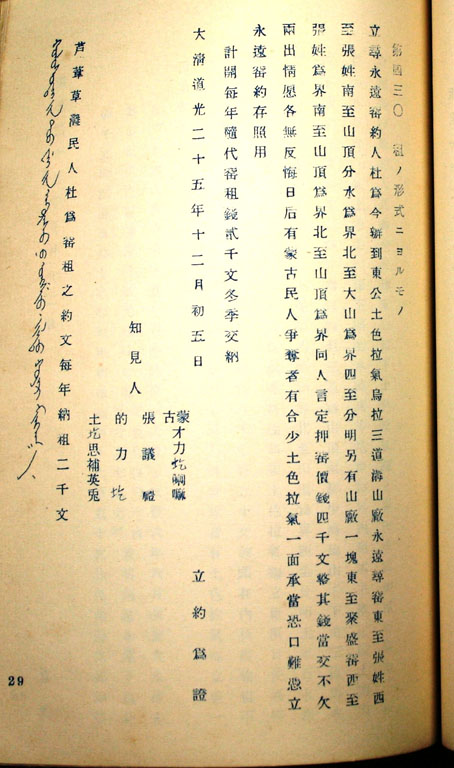 第四三〇　租ノ形式ニヨルモノ
立尋永遠窰約人杜爲今辦到東公土色拉氣烏拉三道溝山廠永遠尋窰東至張姓西
至張姓南至山頂分水爲界北至大山爲界四至分明另有山廠一塊東至聚盛窰西至
張姓爲界南至山頂爲界北至山頂爲界同人言定押窰價錢四千文整其錢當交不欠
兩出情愿各無反悔日后有蒙古民人爭奪者有合少土色拉氣一面承當恐口難憑立
永遠窰約存照用
計開每年隨代窰租錢貳千文冬季交納
大淸道光二十五年十二月初五日
立約爲證
知見人
蒙古 才力圪喇嘛
張議禮
的力圪
土圪思補英兎
芦葦草灣民人杜爲窰租之約文每年納租二千文
29